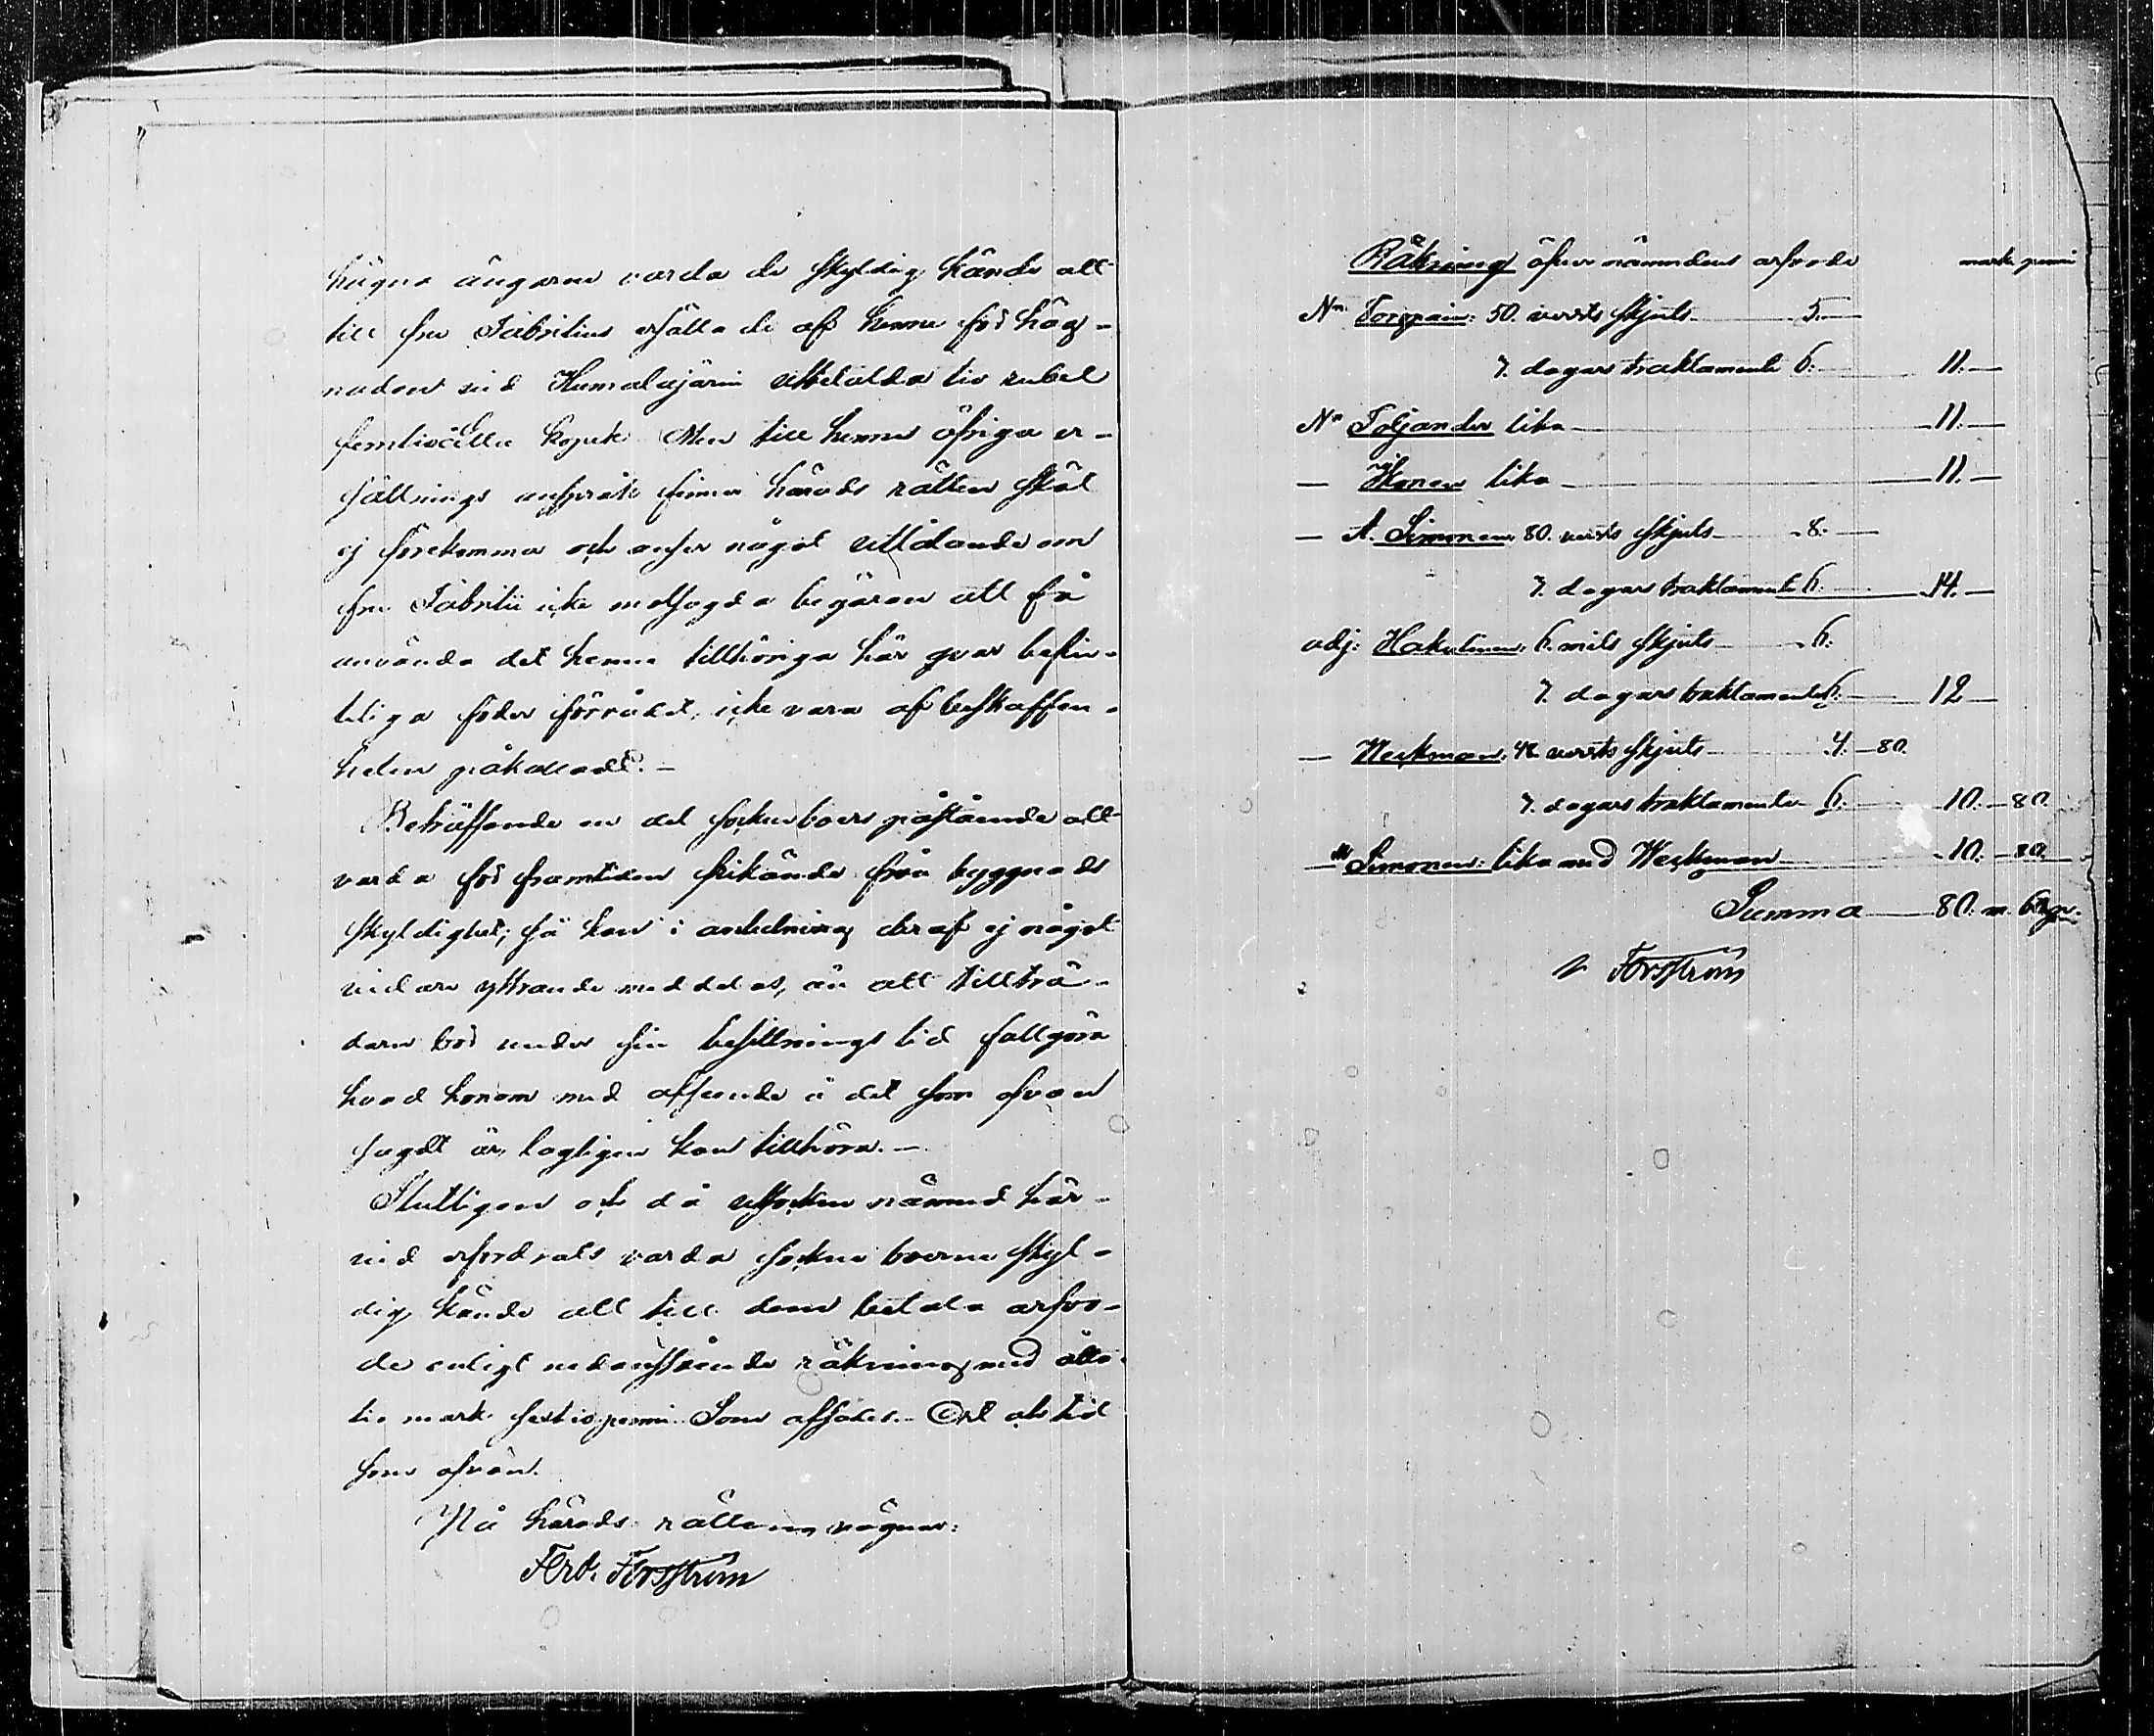 hägna ängarne varda de skyldig kände att
till fru Fabritius ersätta de af henne för häg-
naden vid Humalajärvi utbetalda tio rubel
femtioåtta kopek. Men till henne öfriga er-
sättnings anspråk finner härads rätten skäl
ej förekomma och anser något utlåtande om
fru Fabritii icke motsagda begäran att få
använda det henne tillhöriga här qvar befin-
tliga foder förrådet, icke vara af beskaffen-
heten påkalladt. —
Beträffande en del sockenboers påstående att
varda för framtiden frikände från byggnads
skyldighet; så kan i anledning deraf ej något
vidare yttrande meddelas, än att tillträ-
daren bör under sin besittnings tid fullgöra
hvad honom med afseende å det som ofvan
sagdt är, lagligen kan tillhöra. —
Slutligen och då utsocken nämnd här-
vid erfordrats varda sockne boerne skyl-
dig kände att till dem betala arfvo-
de enligt nedanstående räkning med åtta-
tio mark sextio penni. Som afsades. Ort och tid
som ofvan.
På härads rättens vägnar:
Ferd. Forsström
Räkning öfver nämndens arfvode mark penni
Nn Torppain: 50. versts skjuts 5. —
7. dagars traktamente 6. 11. —
Nn Toljander lika 11. —
— Ikonen lika 11. —
— A. Simonen 80. versts skjuts 8. —
7. dagars traktamente 6. 14. —
adj: Hakulinen, 6. mils skjuts 6.
7. dagars traktamente 6. 12 —
— Weckman, 48 versts skjuts 4. — 80.
7. dagars traktamente 6. 10. — 80.
— M Simonen: lika med Weckman 10. — 80.
Summa 80. m. 60 p.
Forsström